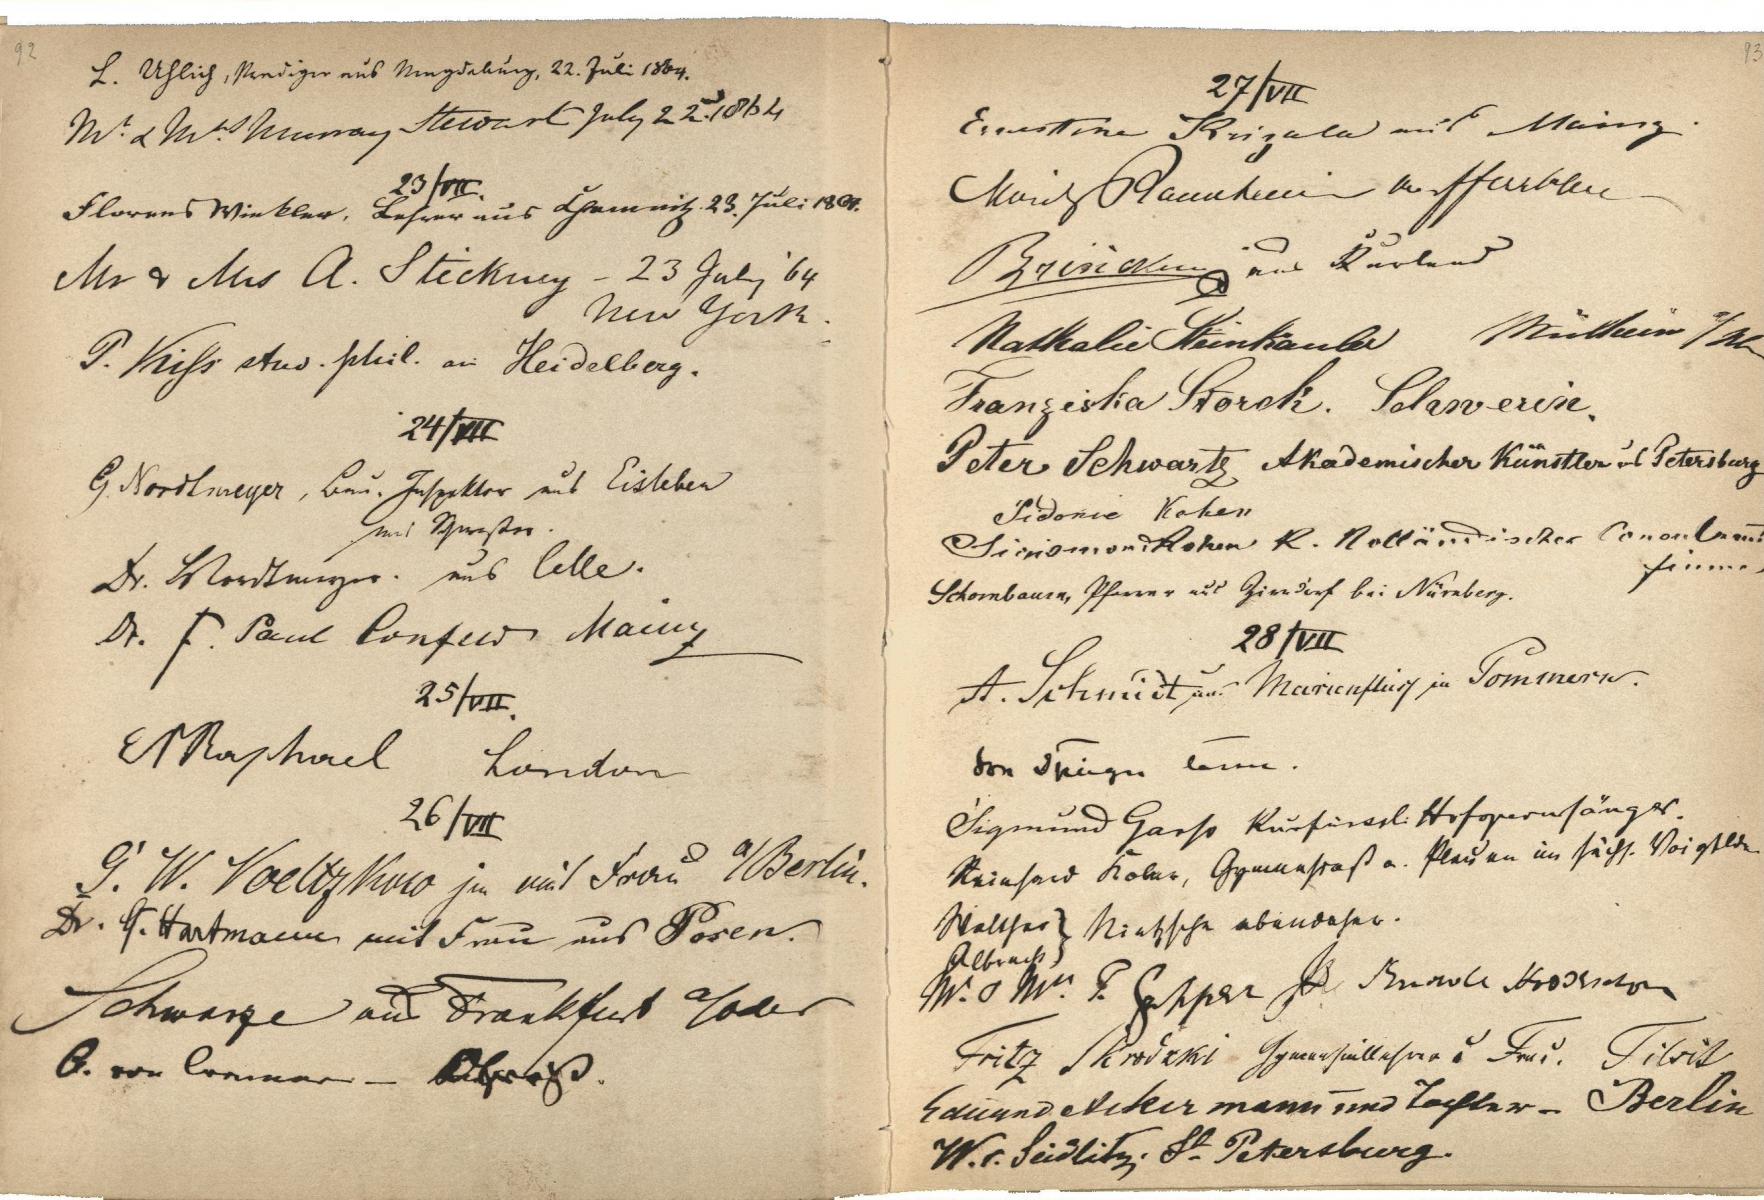 92
L. Uhlich, Prediger aus Magdeburg, 22. Juli 1864.
Mr. & Mrs. Murray Stewart July 22nd 1864
23/VII.
Florens Winkler, Lehrer aus Chemnitz. 23. Juli 1864.
Mr & Mrs A. Stickney – 23 July '64
New York.
P. Kiss stud. phil. Heidelberg.
24/VII
G. Nordtmeyer, Bau-Inspektor aus Eisleben
mit Schwester.
Dr. Nordtmeyer. aus Celle.
Dr. F. Paul Mainz
25/VII.
Raphael London
26/VII
G. W. Voeltzkow jun mit Frau a/Berlin.
Dr. G. Hartmann mit Frau aus Posen.
Schwarze aus Frankfurt a/Oder
von
93
27/VII
Ernestine Krizala aus Mainz.
Moritz
aus Kurland
Nathalie Steinkauler Mülheim a/Rh
Franziska Storck. Schwerin.
Peter Schwartz Akademischer Künstler aus Petersburg
Sidonie Kohen
Sigismond Kohen K. Holländischer
Schornbaum, Pfarrer aus Zirndorf bei Nürnberg.
28/VII
A. Schmidt aus Marienfliess in Pommern.
Sigmund Garso Kurfürstl. Hofopernsänger.
Reinhard Kolbe, Gymnasiast a. Plauen im sächs. Voigtlde
Walther } Nietzsche ebendaher.
Albrecht }
Mr. & Mrs. P.
Fritz Skrodzki Gymnasiallehrer u Frau. Tilsit
Eduard Ackermann und Tochter – Berlin
W. v. Seidlitz. St. Petersburg.